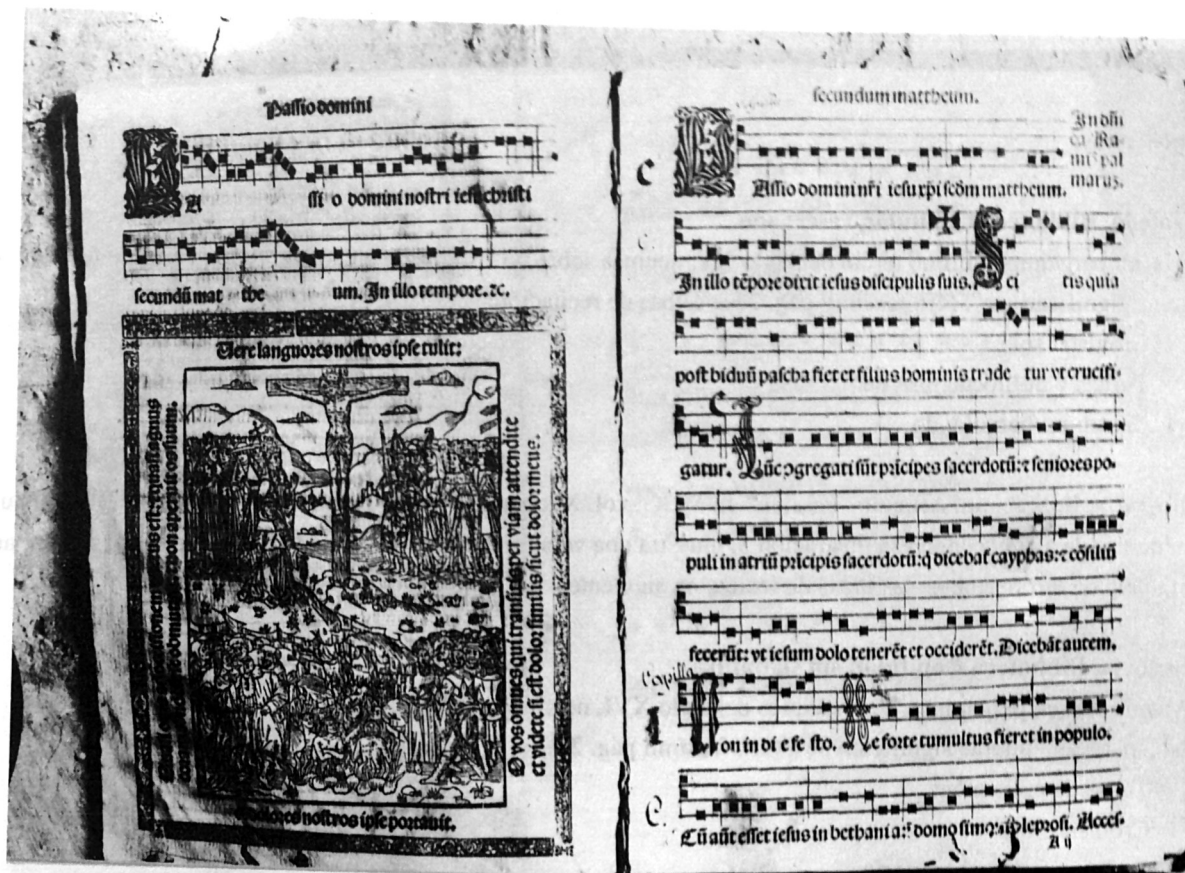 Passio domini
A ssi o domini nostri iesu christi
secundū mat the um. In illo tempore. ⁊c.
Vere languores nostros ipse tulit:
O vos omnes qui transitis per viam attendite
et videte si est dolor similis sicut dolor meus.
dolores nostros ipse portavit.
secundum mattheum.
In dñi
ca Ra
mis pal
maruz.
C
PAssio domini nr̄i iesu xp̄i scd̄m mattheum.
C
In illo tēpore dixit iesus discipulis suis. ✠ Sci tis quia
post biduū pascha fiet et filius hominis trade tur vt crucifi-
C
gatur. Tūc ↄgregati sūt prīcipes sacerdotū: ⁊ seniores po-
puli in atriū prīcipis sacerdotū: q̄ dicebat̄ cayphas: ⁊ cōsiliū
fecerūt: vt iesum dolo tenerēt et occiderēt. Dicebāt autem.
Capilla
Non in di e fe sto. Ne forte tumultus fieret in populo.
C
Cū aūt esset iesus in bethania: domo simonis leprosi. Acces-
A ij